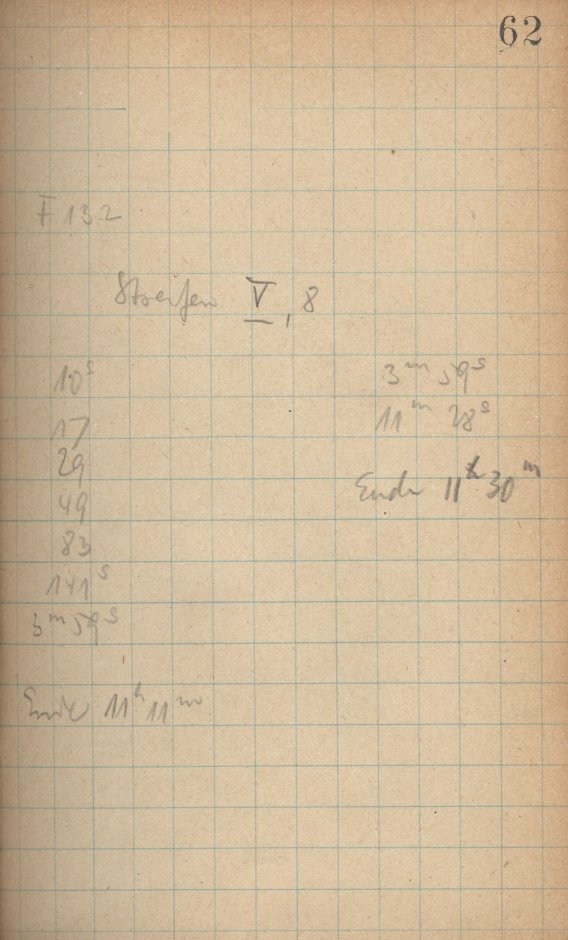 62
F 132
Streifen V, 8
10s
17
29
49
83
141s
3m 59s
Ende 11h 11m
3m 59s
11m 28s
Ende 11h 30m